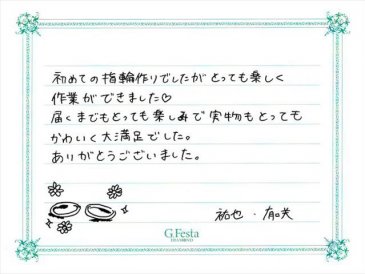 初めての指輪作りでしたがとっても楽しく
作業ができました♡
届くまでもとっても楽しみで実物もとっても
かわいく大満足でした。
ありがとうございました。
祐也・有美
G.Festa